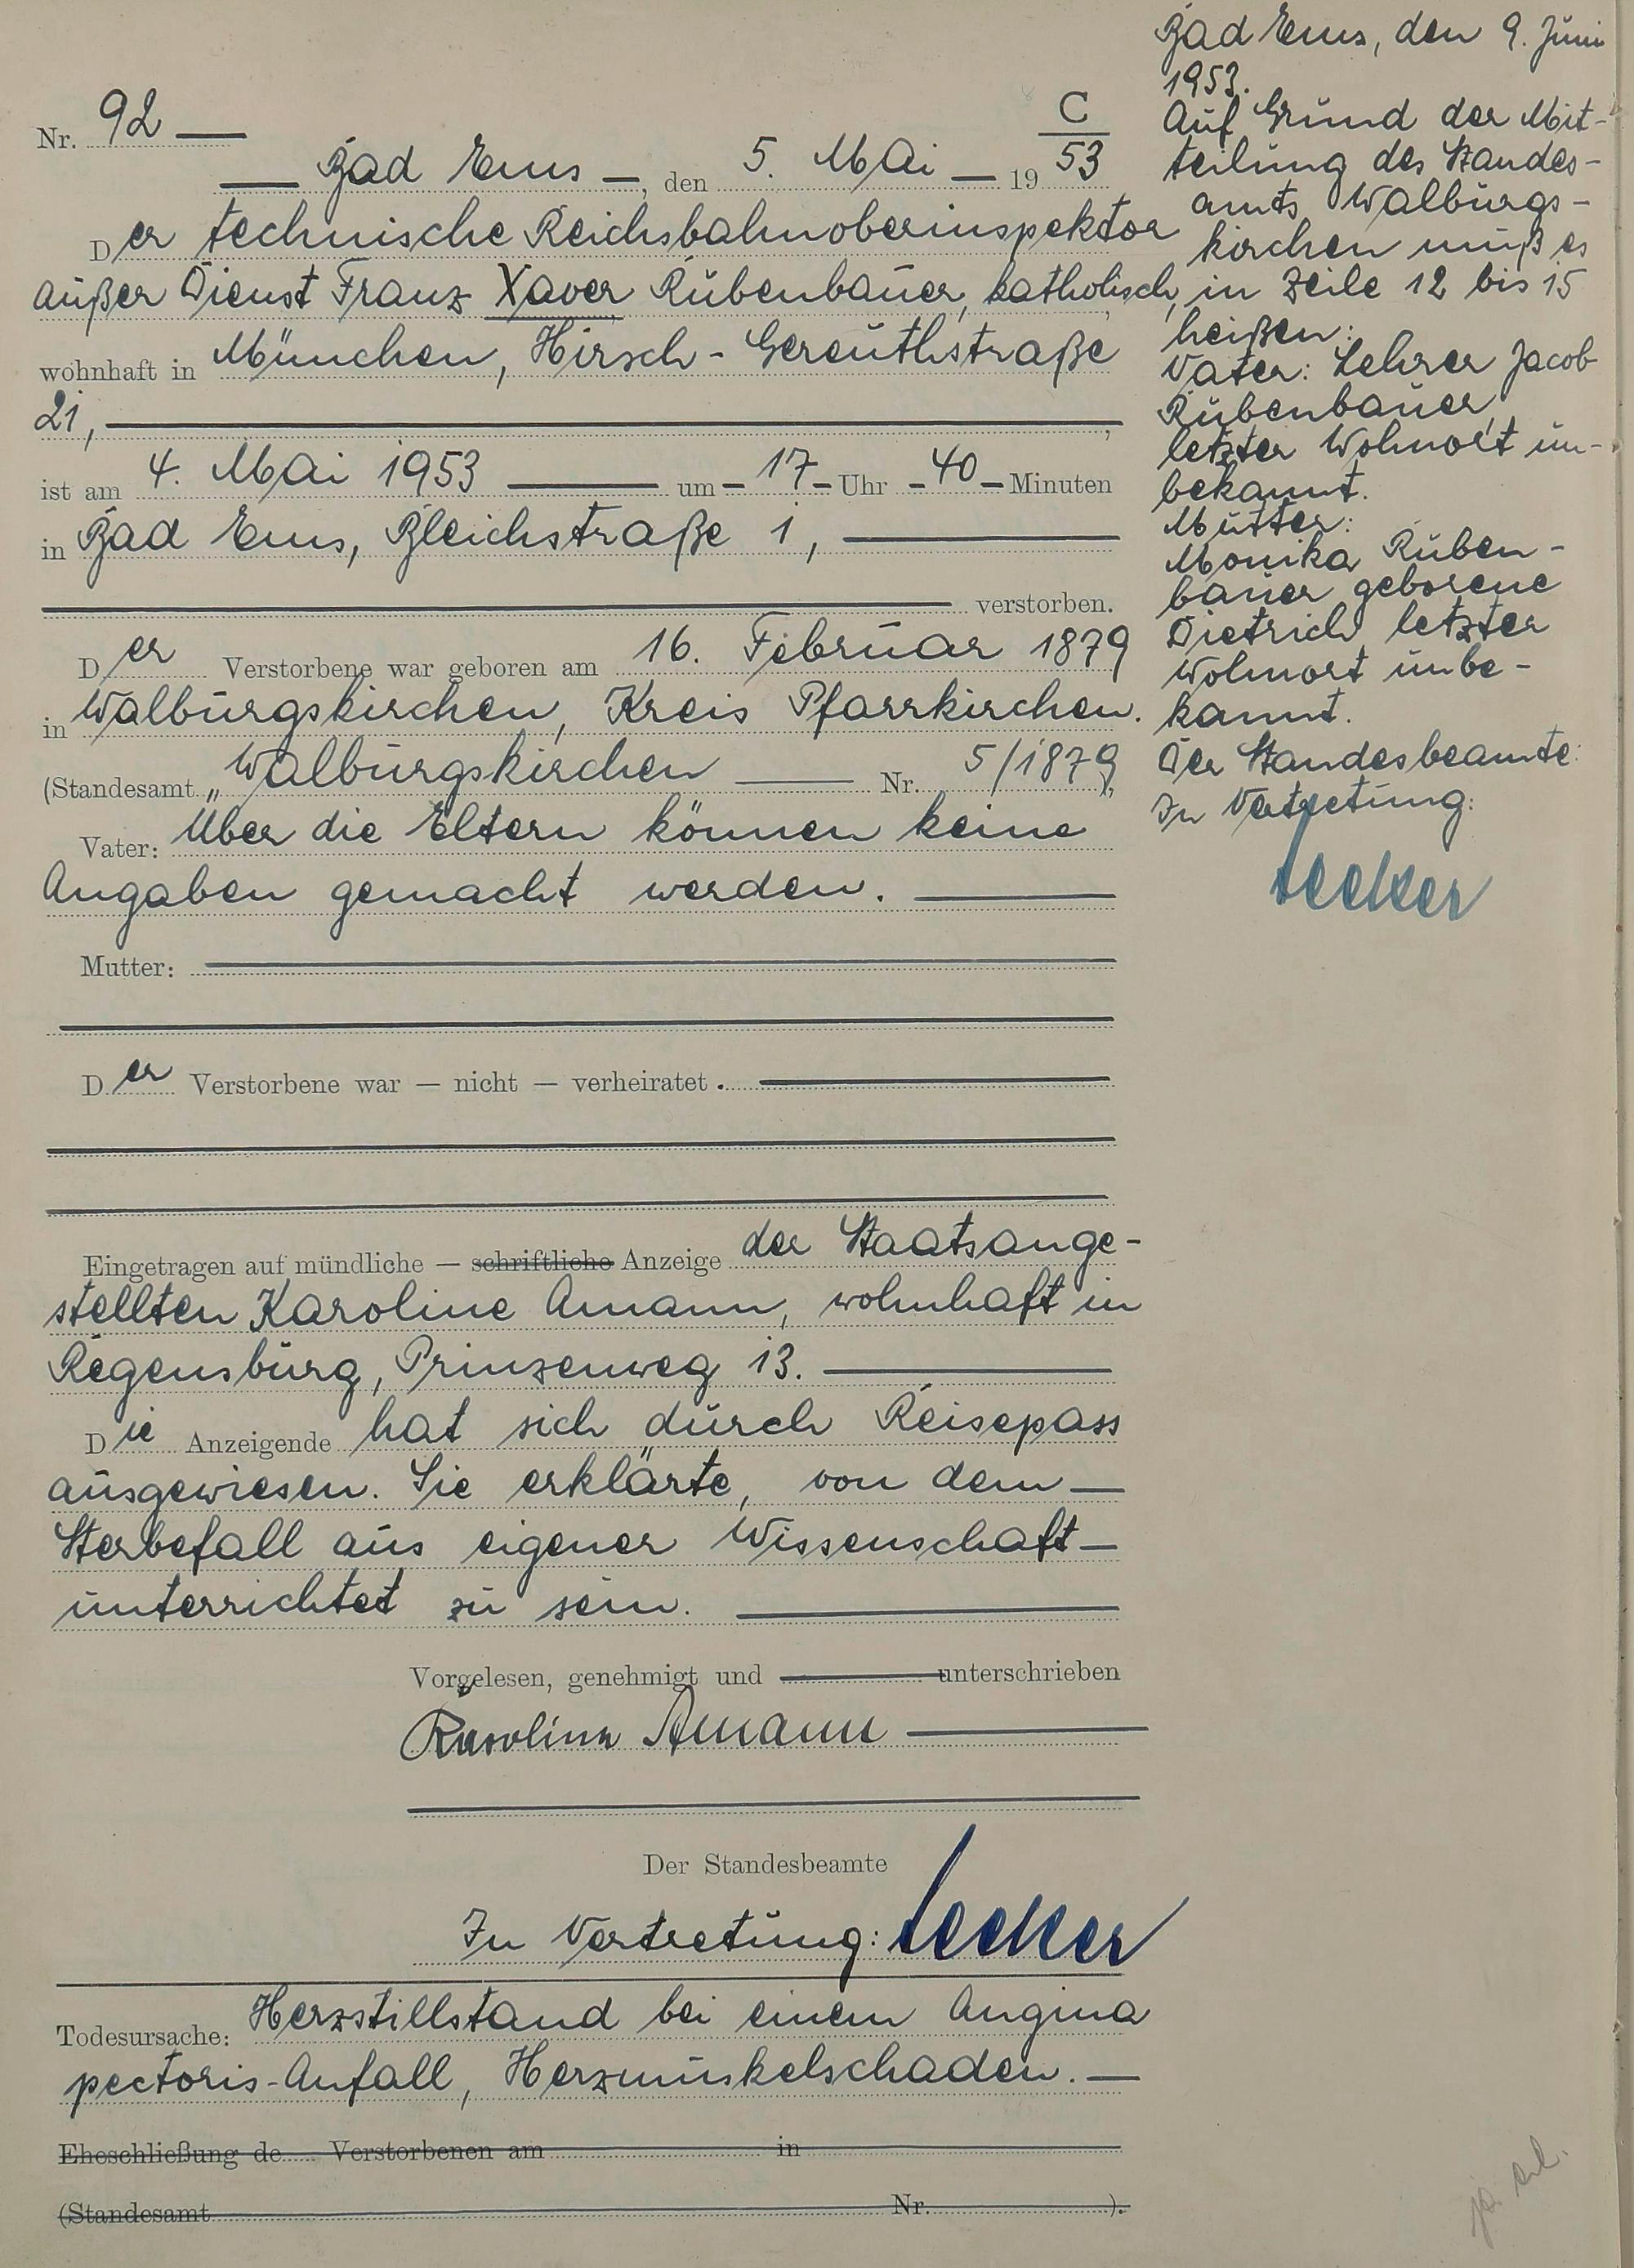 Nr. 92 —
C
— Bad Ems —, den 5. Mai — 19 53
Der technische Reichsbahnoberinspektor
außer Dienst Franz Xaver Rübenbauer, katholisch,
wohnhaft in München, Hirsch-Gereuthstraße
21,
ist am 4. Mai 1953 — um — 17 — Uhr — 40 — Minuten
in Bad Ems, Bleichstraße 1, —
verstorben.
Der Verstorbene war geboren am 16. Februar 1879
in Walburgskirchen, Kreis Pfarrkirchen.
(Standesamt „ Walburgskirchen — Nr. 5/1879)
Vater: Über die Eltern können keine
Angaben gemacht werden. —
Mutter: —
Der Verstorbene war — nicht — verheiratet. —
Eingetragen auf mündliche — schriftliche Anzeige der Staatsange-
stellten Karoline Amann, wohnhaft in
Regensburg, Prinzenweg 13. —
Die Anzeigende hat sich durch Reisepass
ausgewiesen. Sie erklärte, von dem —
Sterbefall aus eigener Wissenschaft —
unterrichtet zu sein. —
Vorgelesen, genehmigt und — unterschrieben
Karolina Amann —
Der Standesbeamte
In Vertretung: Lecker
Todesursache: Herzstillstand bei einem Angina
pectoris-Anfall, Herzmuskelschaden. —
Eheschließung de Verstorbenen am in
(Standesamt Nr. ).
Bad Ems, den 9. Juni
1953.
Auf Grund der Mit-
teilung des Standes-
amts Walburgs-
kirchen muß es
in Zeile 12 bis 15
heißen:
Vater: Lehrer Jacob
Rübenbauer,
letzter Wohnort un-
bekannt.
Mutter:
Monika Rüben-
bauer geborene
Dietrich letzter
Wohnort unbe-
kannt.
Der Standesbeamte:
In Vertretung:
Lecker